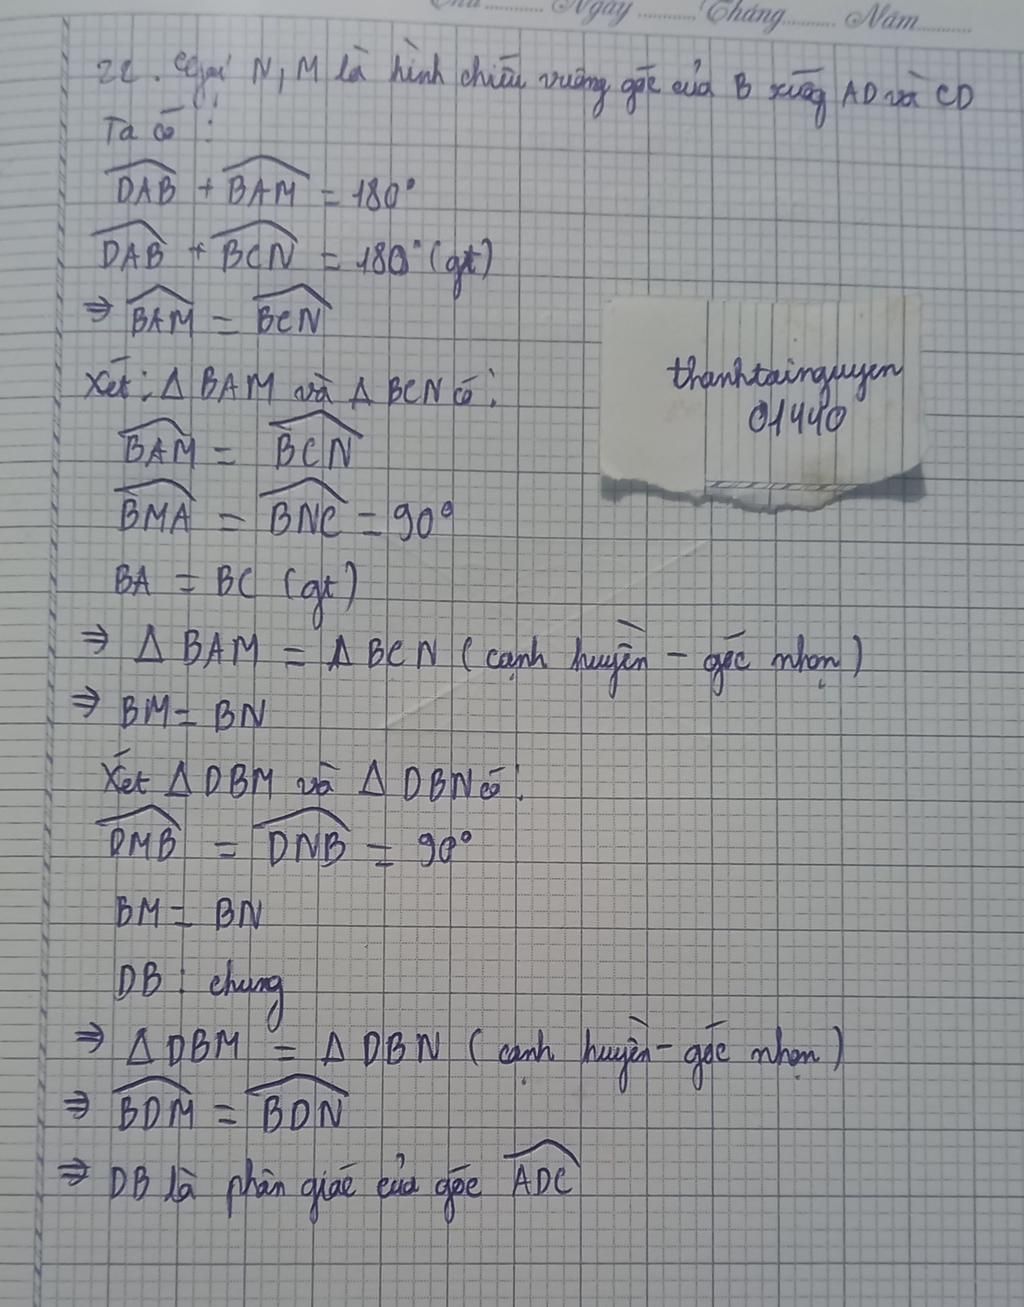 Ngày Tháng Năm
22. Gọi N, M là hình chiếu vuông góc của B xuống AD và CD
Ta có:
DAB + BAM = 180°
DAB + BCN = 180° (gt)
⇒ BAM = BCN
Xét: Δ BAM và Δ BCN có:
BAM = BCN
BMA = BNC = 90°
BA = BC (gt)
⇒ Δ BAM = Δ BCN (cạnh huyền - góc nhọn)
⇒ BM = BN
Xét Δ DBM và Δ DBN có:
DMB = DNB = 90°
BM = BN
DB : chung
⇒ Δ DBM = Δ DBN (cạnh huyền - góc nhọn)
⇒ BDM = BDN
⇒ DB là phân giác của góc ADC
thanhtainguyen
01440